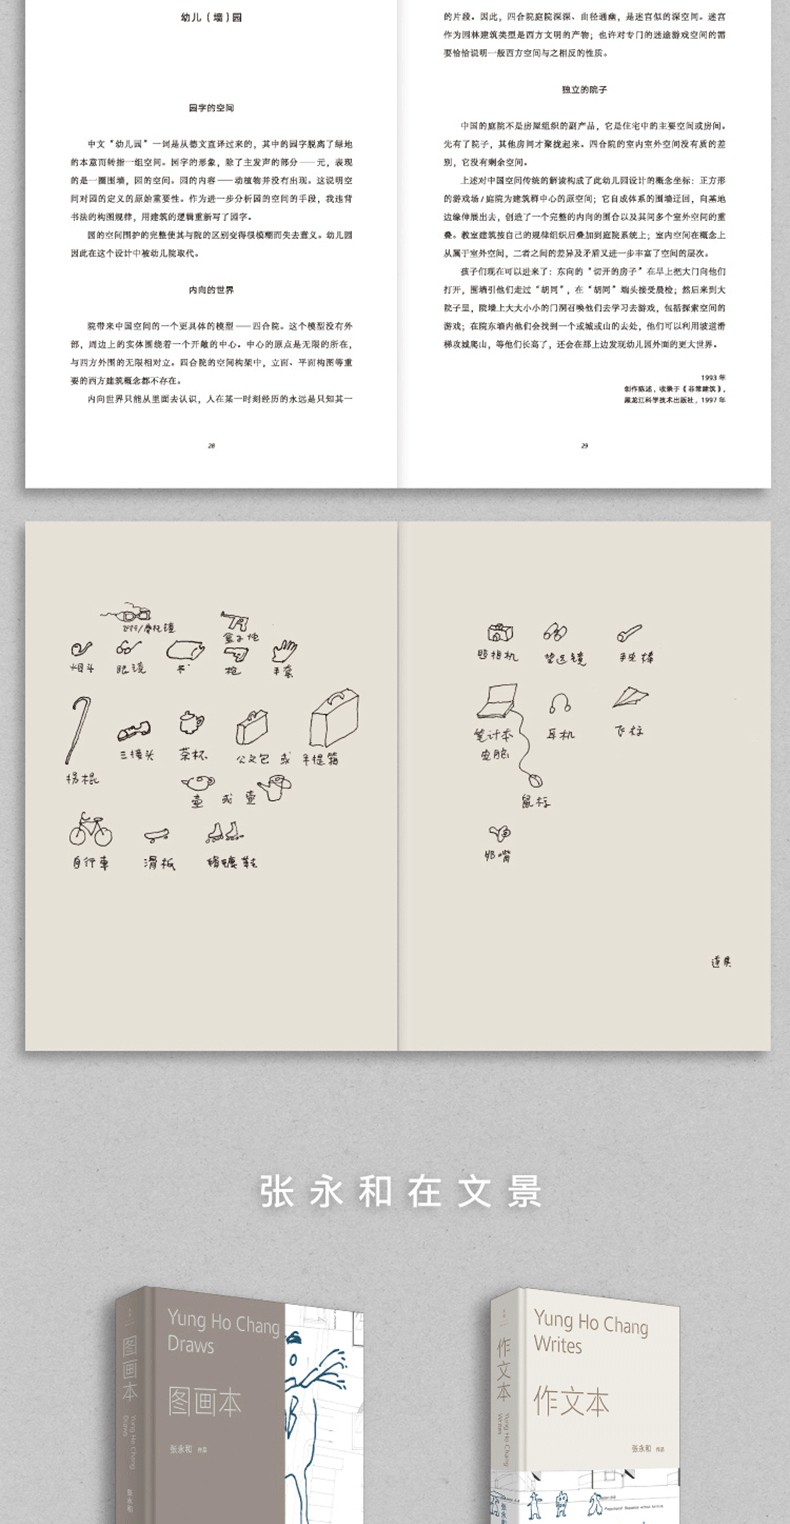 幼儿（墙）园
园字的空间
中文“幼儿园”一词是从德文直译过来的，其中的园字脱离了绿地
的本意而转指一组空间。园字的形象，除了主发声的部分——元，表现
的是一圈围墙，园的空间。园的内容——动植物并没有出现。这说明空
间对园的定义的原始重要性。作为进一步分析园的空间的手段，我违背
书法的构图规律，用建筑的逻辑重新写了园字。
园的空间围护的完整使其与院的区别变得很模糊而失去意义。幼儿园
因此在这个设计中被幼儿院取代。
内向的世界
院带来中国空间的一个更具体的模型——四合院。这个模型没有外
部，周边上的实体围绕着一个开敞的中心。中心的原点是无限的所在，
与四方外围的无限相对立。四合院的空间构架中，立面、平面构图等重
要的西方建筑概念都不存在。
内向世界只能从里面去认识，人在某一时刻经历的永远是只知其一
28
的片段。因此，四合院庭院深深、曲径通幽，是迷宫似的深空间。迷宫
作为园林建筑类型是西方文明的产物；也许对专门的迷途游戏空间的需
要恰恰说明一般西方空间与之相反的性质。
独立的院子
中国的庭院不是房屋组织的副产品，它是住宅中的主要空间或房间。
先有了院子，其他房间才聚拢起来。四合院的室内室外空间没有质的差
别，它没有剩余空间。
上述对中国空间传统的解读构成了此幼儿园设计的概念坐标：正方形
的游戏场/庭院为建筑群中心的原空间；它自成体系的围墙迂回，向基地
边缘伸展出去，创造了一个完整的内向的围合以及其间多个室外空间的重
叠。教室建筑按自己的规律组织后叠加到庭院系统上；室内空间在概念上
从属于室外空间，二者之间的差异及矛盾又进一步丰富了空间的层次。
孩子们现在可以进来了：东向的“切开的房子”在早上把大门向他们
打开，围墙引他们走过“胡同”，在“胡同”端头接受晨检；然后来到大
院子里，院墙上大大小小的门洞召唤他们去学习去游戏，包括探索空间的
游戏；在院东墙内他们会找到一个或城或山的去处，他们可以利用坡道滑
梯攻城爬山，等他们长高了，还会在那上边发现幼儿园外面的更大世界。
1993 年
创作陈述，收录于《非常建筑》，
黑龙江科学技术出版社，1997 年
29
飞行/摩托镜
盒子炮
烟斗 眼镜 书 枪 手套
拐棍 三接头 茶杯 公文包 或 手提箱
壶 或 壶
自行車 滑板 鞋
照相机 望远镜 手电棒
笔计本
电脑
耳机
飞机
鼠标
奶嘴
道具
张永和在文景
图画本
Yung Ho Chang
Draws
张永和
Yung Ho Chang
Draws
图画本
张永和 作品
作文本
Yung Ho Chang
Writes
张永和
Yung Ho Chang
Writes
作文本
张永和 作品